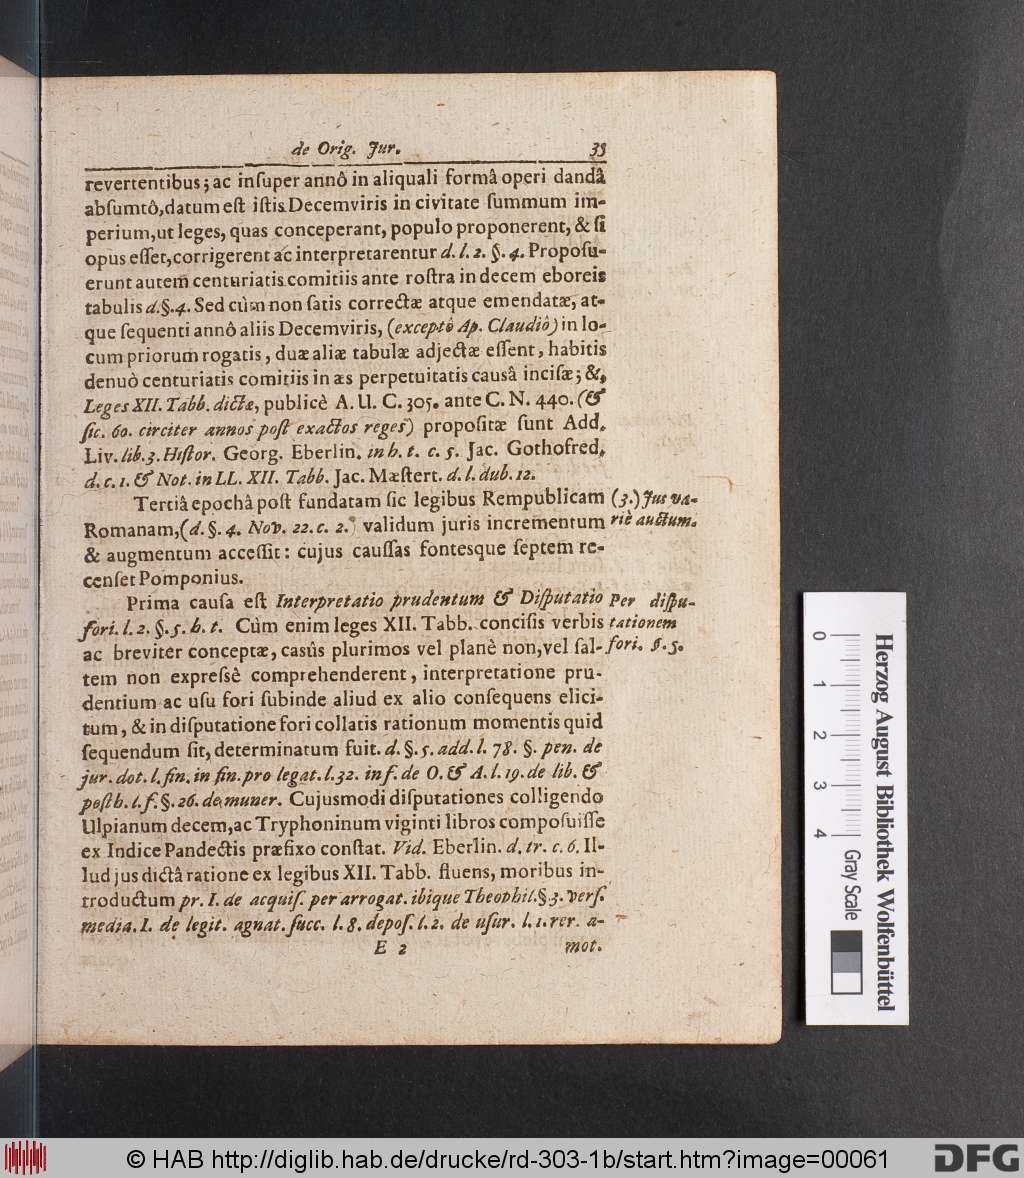 de Orig. Jur. 35
revertentibus; ac inſuper annô in aliquali formâ operi dandâ
abſumtô, datum eſt iſtis Decemviris in civitate ſummum im-
perium, ut leges, quas conceperant, populo proponerent, & ſi
opus eſſet, corrigerent ac interpretarentur d. l. 2. §. 4. Propoſu-
erunt autem centuriatis comitiis ante roſtra in decem eboreis
tabulis d. §. 4. Sed cùm non ſatis correctæ atque emendatæ, at-
que ſequenti annô aliis Decemviris, (exceptô Ap. Claudiô) in lo-
cum priorum rogatis, duæ aliæ tabulæ adjectæ eſſent, habitis
denuò centuriatis comitiis in æs perpetuitatis causâ inciſæ; &,
Leges XII. Tabb. dictæ, publicè A. U. C. 305. ante C. N. 440. (&
ſic. 60. circiter annos poſt exactos reges) propoſitæ ſunt Add.
Liv. lib. 3. Hiſtor. Georg. Eberlin. in h. t. c. 5. Jac. Gothofred.
d. c. 1. & Not. in LL. XII. Tabb. Jac. Mæſtert. d. l. dub. 12.
Tertiâ epochâ poſt fundatam ſic legibus Rempublicam
Romanam, (d. §. 4. Nov. 22. c. 2.) validum juris incrementum
& augmentum acceſſit: cujus cauſſas fontesque ſeptem re-
cenſet Pomponius.
(3.) Jus va-
riè auctum.
Prima cauſa eſt Interpretatio prudentum & Diſputatio
fori. l. 2. §. 5. h. t. Cùm enim leges XII. Tabb. conciſis verbis
ac breviter conceptæ, casûs plurimos vel planè non, vel ſal-
tem non expreſsè comprehenderent, interpretatione pru-
dentium ac uſu fori ſubinde aliud ex alio conſequens elici-
tum, & in diſputatione fori collatis rationum momentis quid
ſequendum ſit, determinatum fuit. d. §. 5. add. l. 78. §. pen. de
jur. dot. l. fin. in fin. pro legat. l. 32. inf. de O. & A. l. 19. de lib. &
poſth. l. f. §. 26. de muner. Cujusmodi diſputationes colligendo
Ulpianum decem, ac Tryphoninum viginti libros compoſuiſſe
ex Indice Pandectis præfixo conſtat. Vid. Eberlin. d. tr. c. 6. Il-
lud jus dictâ ratione ex legibus XII. Tabb. fluens, moribus in-
troductum pr. I. de acquiſ. per arrogat. ibique Theophil. § 3. verſ.
media. I. de legit. agnat. ſucc. l. 8. depoſ. l. 2. de uſur. l. 1. rer. a-
Per diſpu-
tationem
fori. §. 5.
E 2 mot.
0 1 2 3 4 Gray Scale
Herzog August Bibliothek Wolfenbüttel
© HAB http://diglib.hab.de/drucke/rd-303-1b/start.htm?image=00061
DFG